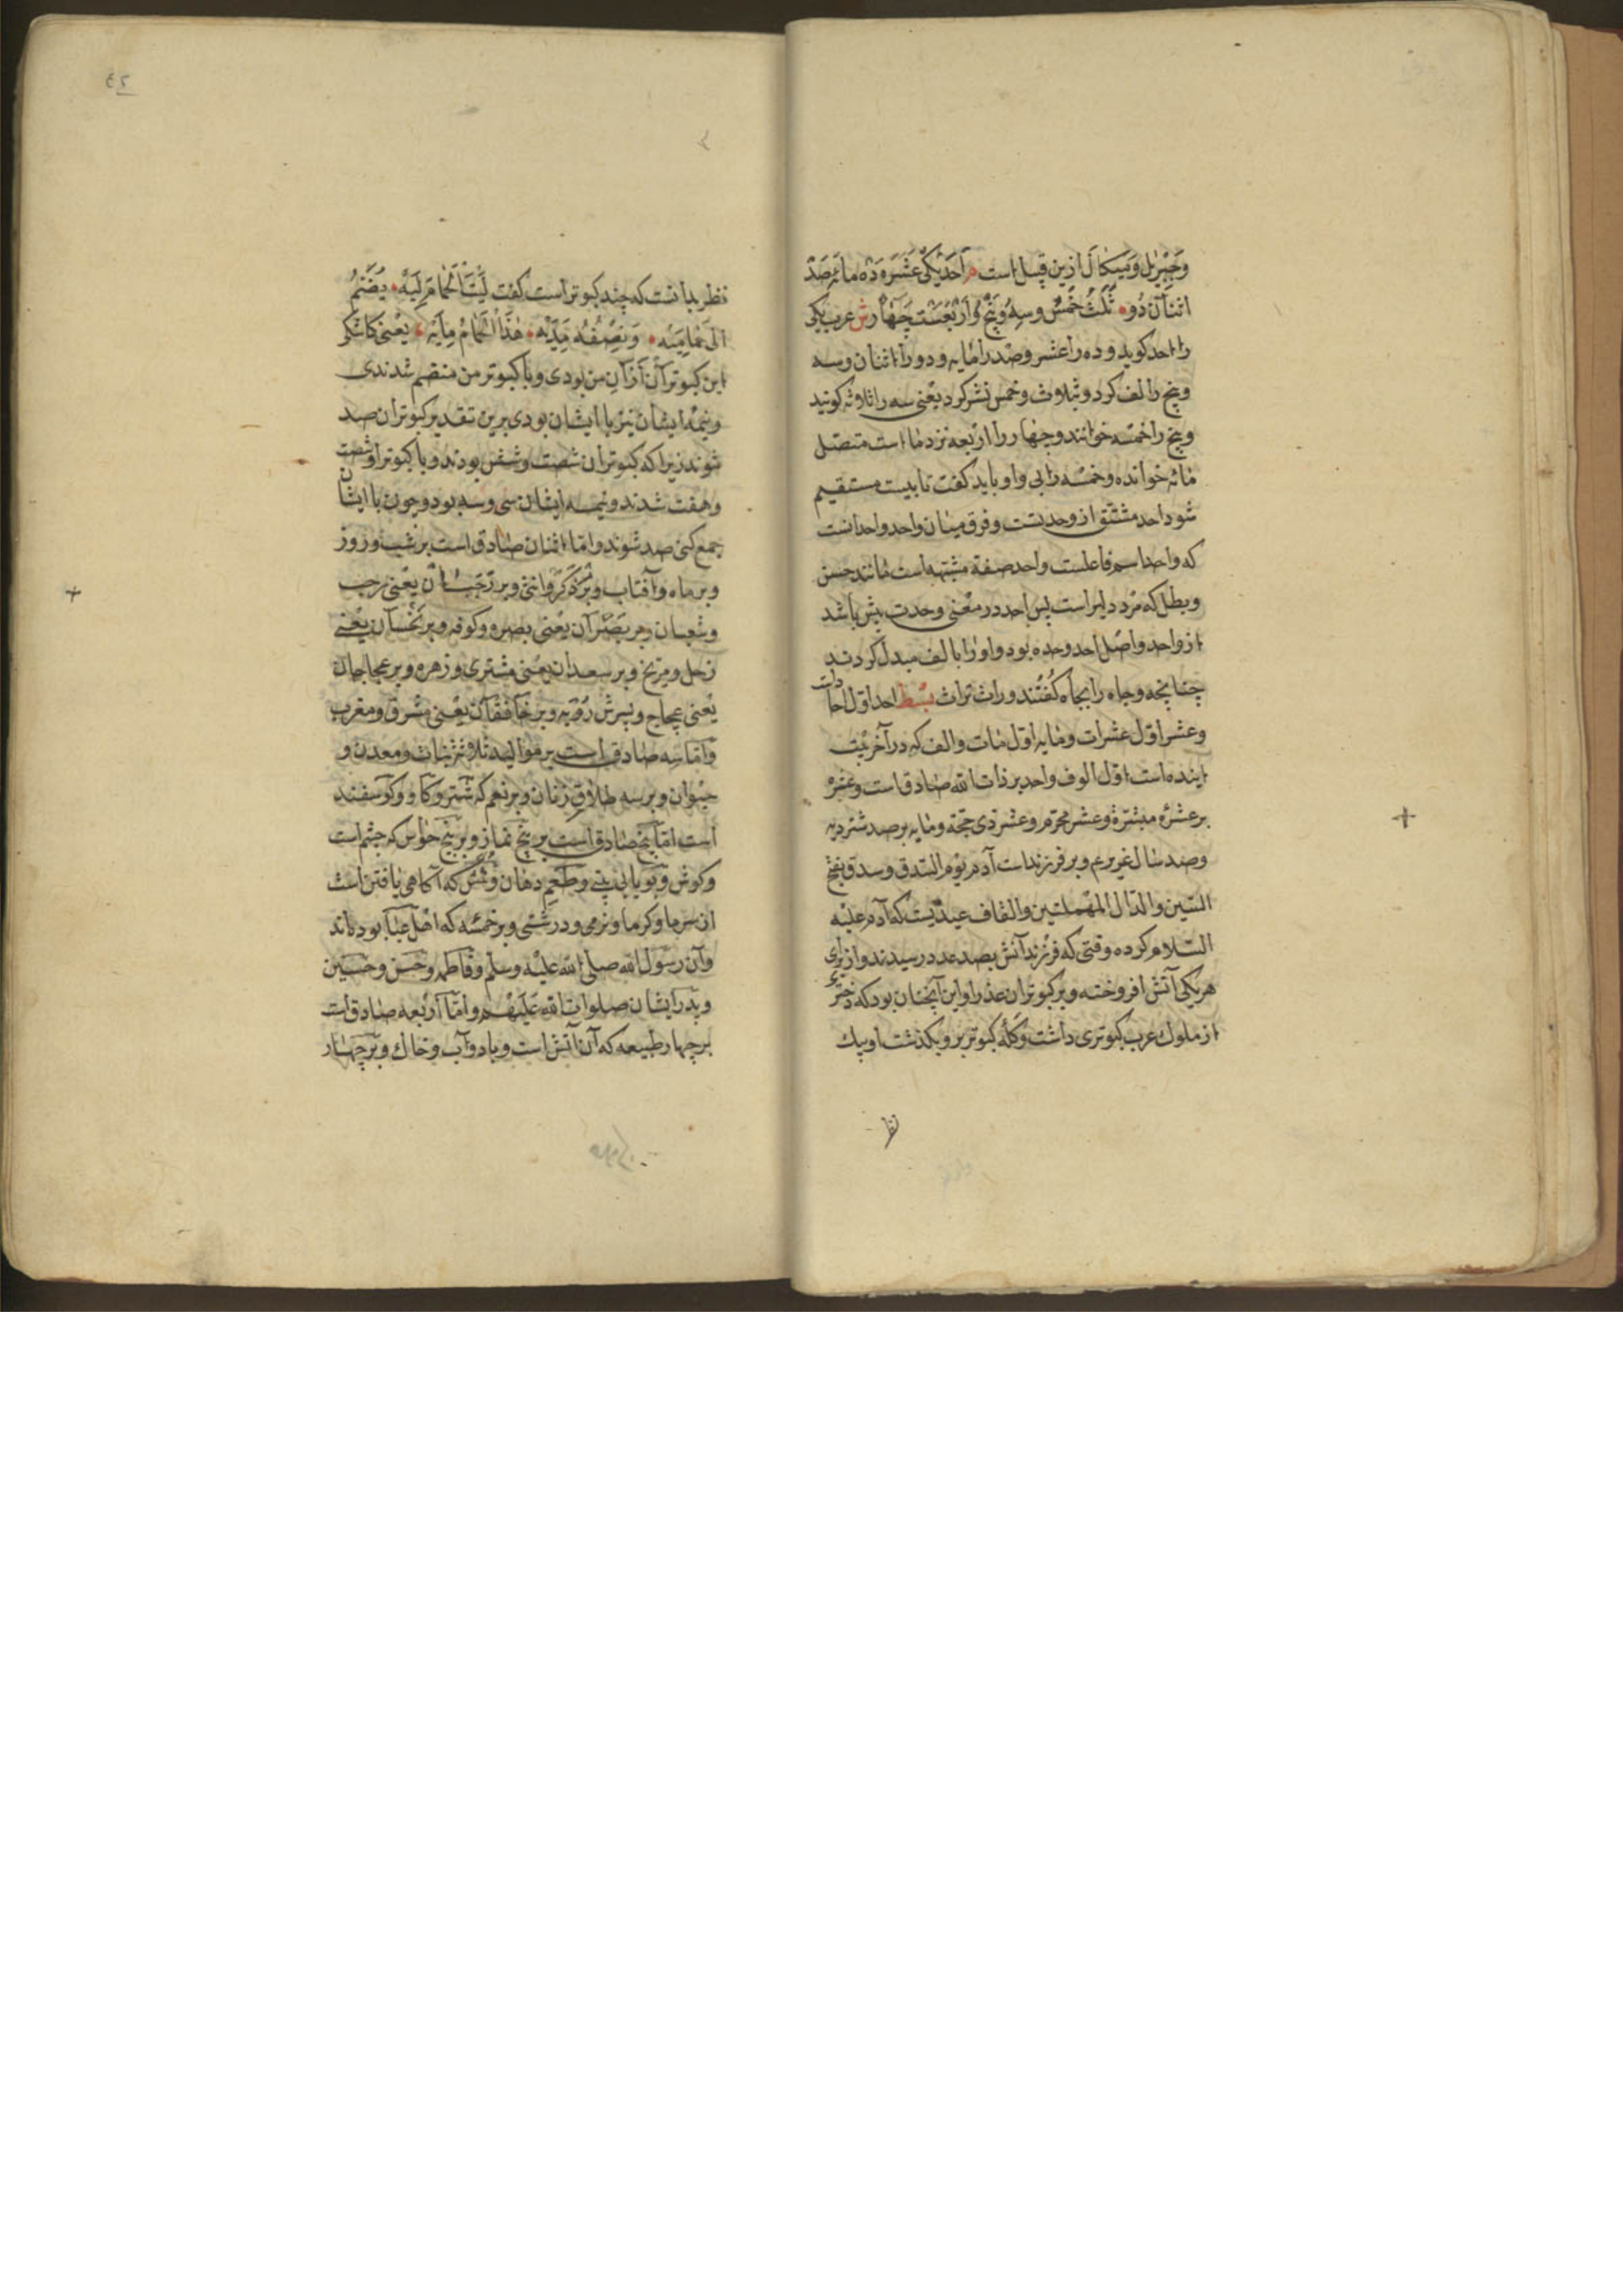 وجبریل ومیکال ازین قبیل است م احد یکی عشره ده مائه صد
اثنان دو ثلث خمس وسه وپنج واربعست چهار ش عرب یکی
را احد کوید وده را عشر وصد را مایه ودو را اثنان وسه
وپنج را لف کرد وبثلاث وخمس نشر کرد یعنی سه را ثلاثه کویند
وپنج را خمسه خوانند وچهار را اربعه نزد ما است متصل
مائه خوانده وخمسه را بی واو باید کفت تا بیت مستقیم
شود احد مشتق از وحدتست وفرق میان واحد واحد انست
که واحد اسم فاعلست واحد صفة مشبهه است مانند حسن
وبطل که مرد دلیر است پس احد در معنی وحدت بیش باشد
از واحد واصل احد وحده بود واو را بالف مبدل کردند
چنانچه وجاه را بجاه کفتند وراث تراث بسط احد اول احادات
وعشر اول عشرات ومایه اول مات والف که در آخر بیت
اینده است اول الوف واحد بر ذات الله صادق است وعشر
بر عشرهٔ مبشره وعشر محرم وعشر ذی حجة ومایه بر صد شتر دیه
وصد سال عزیر وبر فرزندات آدم یوم السدق وسدق بفتح
السین والدال المهملتین والقاف عیدیست که آدم علیه
السلام کرده وقتی که فرزندانش بصد عدد رسیدند واز برای
هریکی آتش افروخته وبر کبوتران عذرا واین آنچنان بود که دختری
از ملوک عرب کبوتری داشت وکله کبوتر برو بکذشت او بیک
نظر
نظر بدانست که چند کبوتر است کفت لَیْتَ الحَمامَ لِیَه یضم
الی حمامتیه ونصفه قدیه هذا الحمام مایه یعنی کاشکی
این کبوتران از آن من بودی وبا کبوتر من منضم شدندی
ونیمه ایشان نیز با ایشان بودی برین تقدیر کبوتران صد
شوند زیرا که کبوتران شصت وشش بودند وبا کبوتر او شصت
وهفت شدند ونیمه ایشان سی وسه بود وچون با ایشان
جمع کنی صد شوند واما اثنان صادق است بر شب وروز
وبر ماه وآفتاب وبر ذکر وانثی وبر رجبان یعنی رجب
وشعبان وبر بصرآن یعنی بصره وکوفه وبر نحسان یعنی
زحل ومریخ وبر سعدان یعنی مشتری وزهره وبر عجاجان
یعنی عجاج وپسرش رؤبه وبر خافقان یعنی مشرق ومغرب
واما سه صادق است بر موالید ثلاثه نبات ومعدن و
حیوان وبر سه طلاق زنان وبر نعم که شتر وکاو وکوسفند
است اما پنج صادق است بر پنج نماز وبر پنج حواس که چشم است
وکوش وبویایی بینی وطعم دهان ولمس که آکاهی یافتن است
از سرما وکرما ونرمی ودرشتی وبر خمسه که اهل عبا بوده‌اند
وآن رسول الله صلی الله علیه وسلم وفاطمه وحسن وحسین
وپدر ایشان صلوات الله علیهم واما اربعه صادق است
بر چهار طبیعه که آن آتش است وباد وآب وخاک وبر چهار